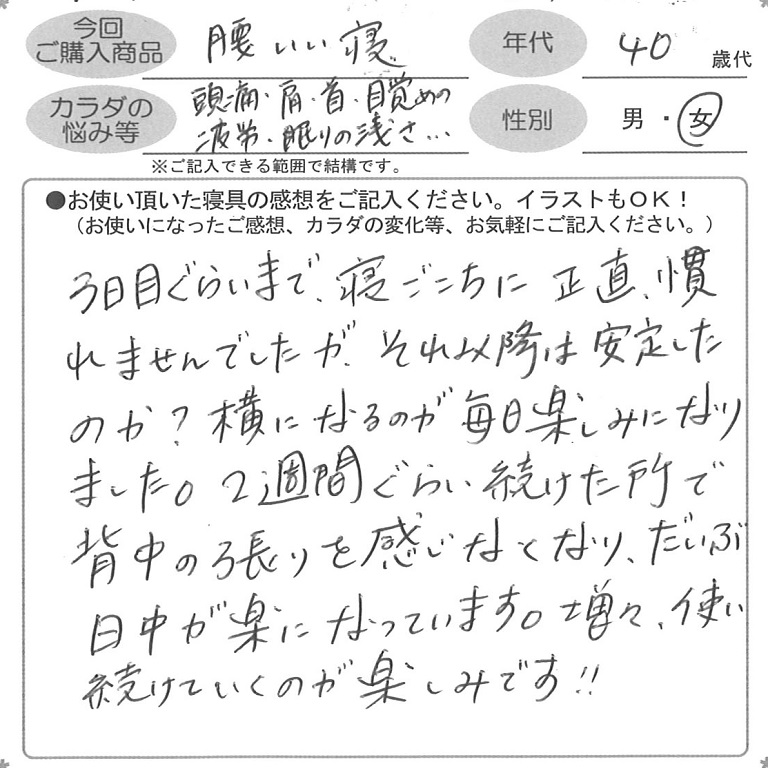 今回
ご購入商品
腰いい寝
年代
40
歳代
カラダの
悩み等
頭痛・肩・首・目覚めの
疲労・眠りの浅さ…
性別
男・女
※ご記入できる範囲で結構です。
●お使い頂いた寝具の感想をご記入ください。イラストもOK！
（お使いになったご感想、カラダの変化等、お気軽にご記入ください。）
3日目ぐらいまで、寝ごこちに正直、慣
れませんでしたが、それ以降は安定した
のか？横になるのが毎日楽しみになり
ました。2週間ぐらい続けた所で
背中の張りを感じなくなり、だいぶ
日中が楽になっています。増々、使い
続けていくのが楽しみです!!